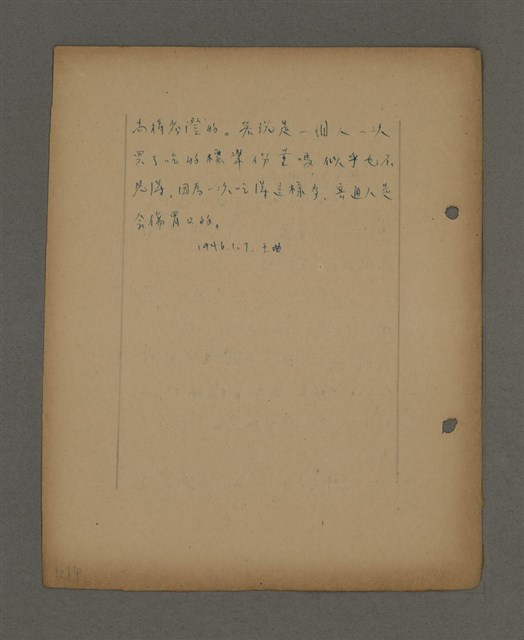 為標準的。若說是一個人一次
買了吃的標準份量嗎似乎也不
見得，因為一次吃得這樣多，普通人是
會傷胃口的。
1946.1.7.